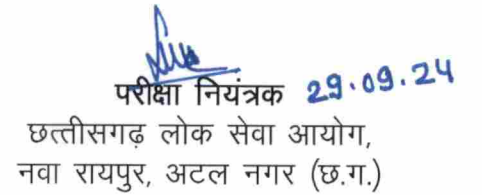 परीक्षा नियंत्रक 29.09.24
छत्तीसगढ़ लोक सेवा आयोग,
नवा रायपुर, अटल नगर (छ.ग.)